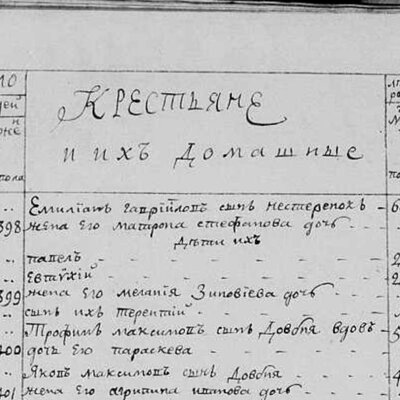 Крестьяне
и ихъ домашные
Емилианъ гаврийловъ сынъ нестеренокъ 6
398 жена его матрона стефанова дочь
дѣти ихъ
павелъ 2
Евтухій 2
399 жена его мелания Зиновіева дочь
сынъ ихъ терентий
Трофимъ максимовъ сынъ Довбня вдовъ 5
400 дочь Его параскева
Яковъ максимовъ сынъ Довбня 4
401 жена его агрипина иванова дочь